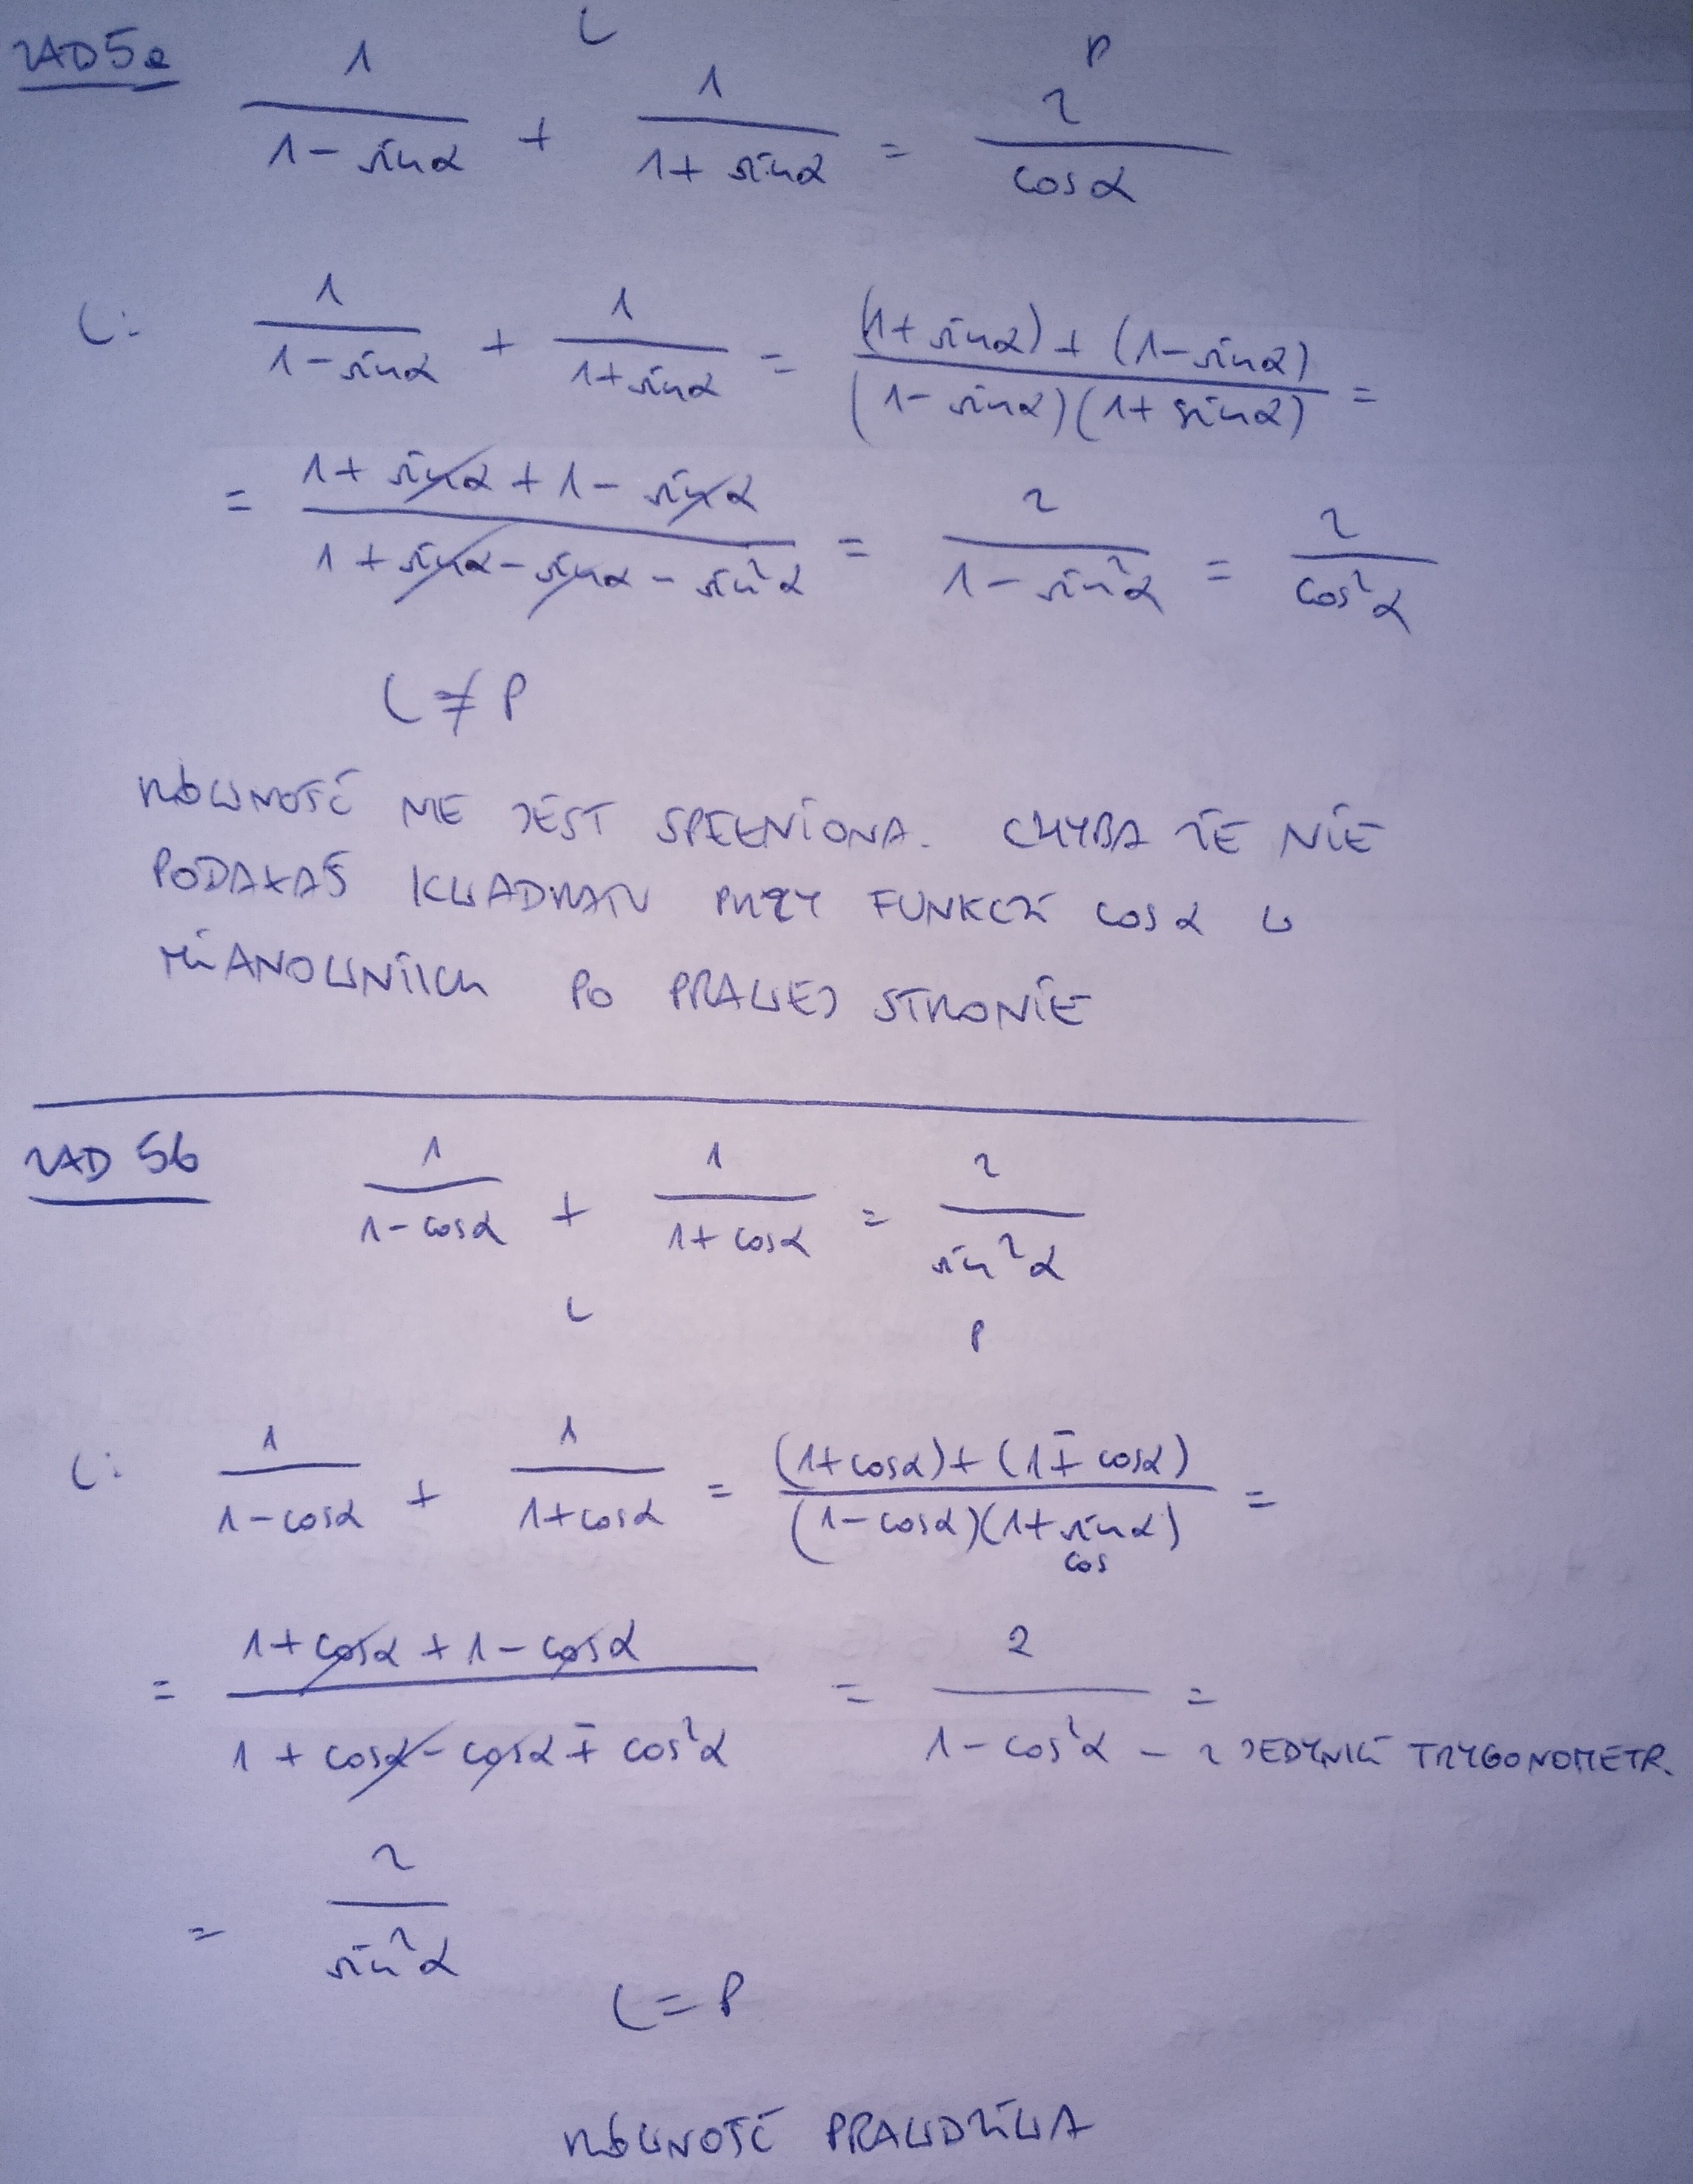 ZAD 5a L P
1/(1 - sinα) + 1/(1 + sinα) = 2/cosα
L: 1/(1 - sinα) + 1/(1 + sinα) = ((1 + sinα) + (1 - sinα))/((1 - sinα)(1 + sinα)) =
= (1 + sinα + 1 - sinα)/(1 + sinα - sinα - sin²α) = 2/(1 - sin²α) = 2/cos²α
L ≠ P
RÓWNOŚĆ NIE JEST SPEŁNIONA. CHYBA ŻE NIE
PODAŁAŚ KWADRATU PRZY FUNKCJI cosα W
MIANOWNIKU PO PRAWEJ STRONIE
ZAD 5b 1/(1 - cosα) + 1/(1 + cosα) = 2/sin²α
L P
L: 1/(1 - cosα) + 1/(1 + cosα) = ((1 + cosα) + (1 - cosα))/((1 - cosα)(1 + sinα)) =
cos
= (1 + cosα + 1 - cosα)/(1 + cosα - cosα - cos²α) = 2/(1 - cos²α) = - Z JEDYNKI TRYGONOMETR.
= 2/sin²α
L = P
RÓWNOŚĆ PRAWDZIWA